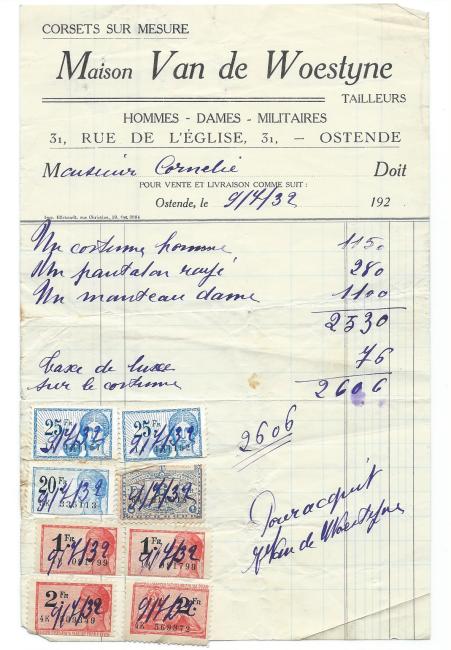 CORSETS SUR MESURE
Maison Van de Woestyne
TAILLEURS
HOMMES - DAMES - MILITAIRES
31, RUE DE L'ÉGLISE, 31, — OSTENDE
Monsieur Cornelie Doit
POUR VENTE ET LIVRAISON COMME SUIT :
Ostende, le 9/7/32 192
Un costume homme 1150
Un pantalon rayé 280
Un manteau dame 1100
2530
Taxe de luxe 76
sur le costume 2606
2606
25 Fr 25 Fr
9/7/32 9/7/32
20 Fr
9/7/32 9/7/32
1 Fr 1 Fr
9/7/32 9/7/32
2 Fr 2 Fr
9/7/32 9/7/32
4K 569379
Pour acquit
Van de Woestyne